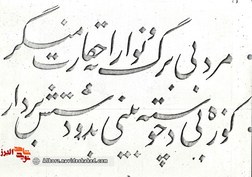 مرد بی برگ و نوا را به حقارت منگر
کوزه بی دسته چو بینی بدو دستش بردار
البرز
Alborz.navideshahed.com